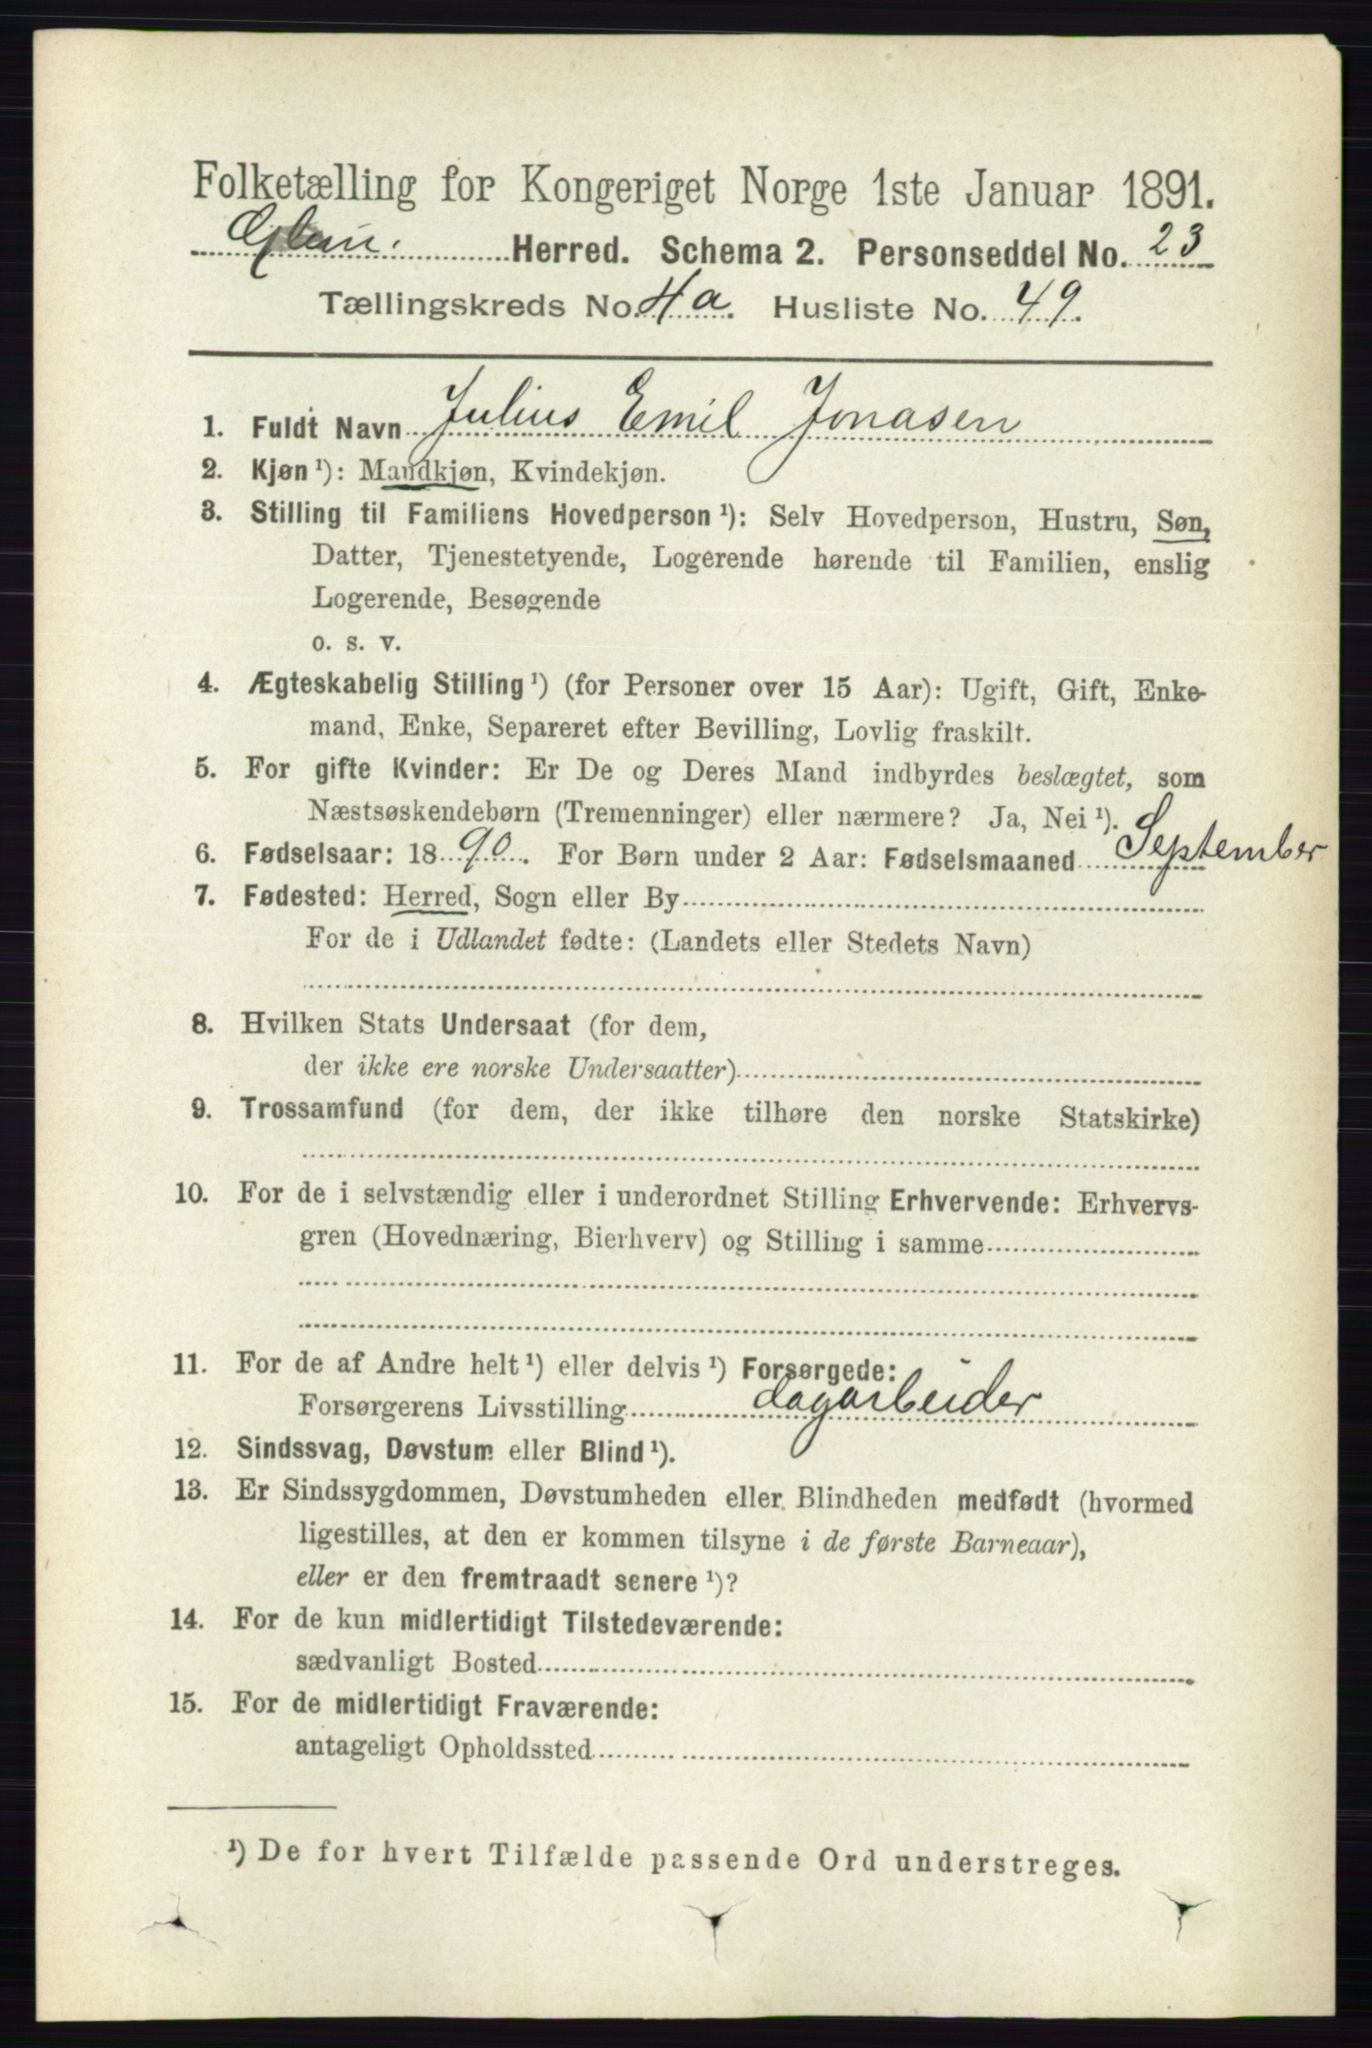 Folketælling for Kongeriget Norge 1ste Januar 1891.
Glem. Herred. Schema 2. Personseddel No. 23
Tællingskreds No. 4a. Husliste No. 49.
1. Fuldt Navn Julius Emil Jonasen
2. Kjøn¹): Mandkjøn, Kvindekjøn.
3. Stilling til Familiens Hovedperson¹): Selv Hovedperson, Hustru, Søn,
Datter, Tjenestetyende, Logerende hørende til Familien, enslig
Logerende, Besøgende
o. s. v.
4. Ægteskabelig Stilling¹) (for Personer over 15 Aar): Ugift, Gift, Enke-
mand, Enke, Separeret efter Bevilling, Lovlig fraskilt.
5. For gifte Kvinder: Er De og Deres Mand indbyrdes beslægtet, som
Næstsøskendebørn (Tremenninger) eller nærmere? Ja, Nei¹).
6. Fødselsaar: 1890. For Børn under 2 Aar: Fødselsmaaned September
7. Fødested: Herred, Sogn eller By
For de i Udlandet fødte: (Landets eller Stedets Navn)
8. Hvilken Stats Undersaat (for dem,
der ikke ere norske Undersaatter)
9. Trossamfund (for dem, der ikke tilhøre den norske Statskirke)
10. For de i selvstændig eller i underordnet Stilling Erhvervende: Erhvervs-
gren (Hovednæring, Bierhverv) og Stilling i samme
11. For de af Andre helt¹) eller delvis¹) Forsørgede:
Forsørgerens Livsstilling dagarbeider
12. Sindssvag, Døvstum eller Blind¹).
13. Er Sindssygdommen, Døvstumheden eller Blindheden medfødt (hvormed
ligestilles, at den er kommen tilsyne i de første Barneaar),
eller er den fremtraadt senere¹)?
14. For de kun midlertidigt Tilstedeværende:
sædvanligt Bosted
15. For de midlertidigt Fraværende:
antageligt Opholdssted
¹) De for hvert Tilfælde passende Ord understreges.